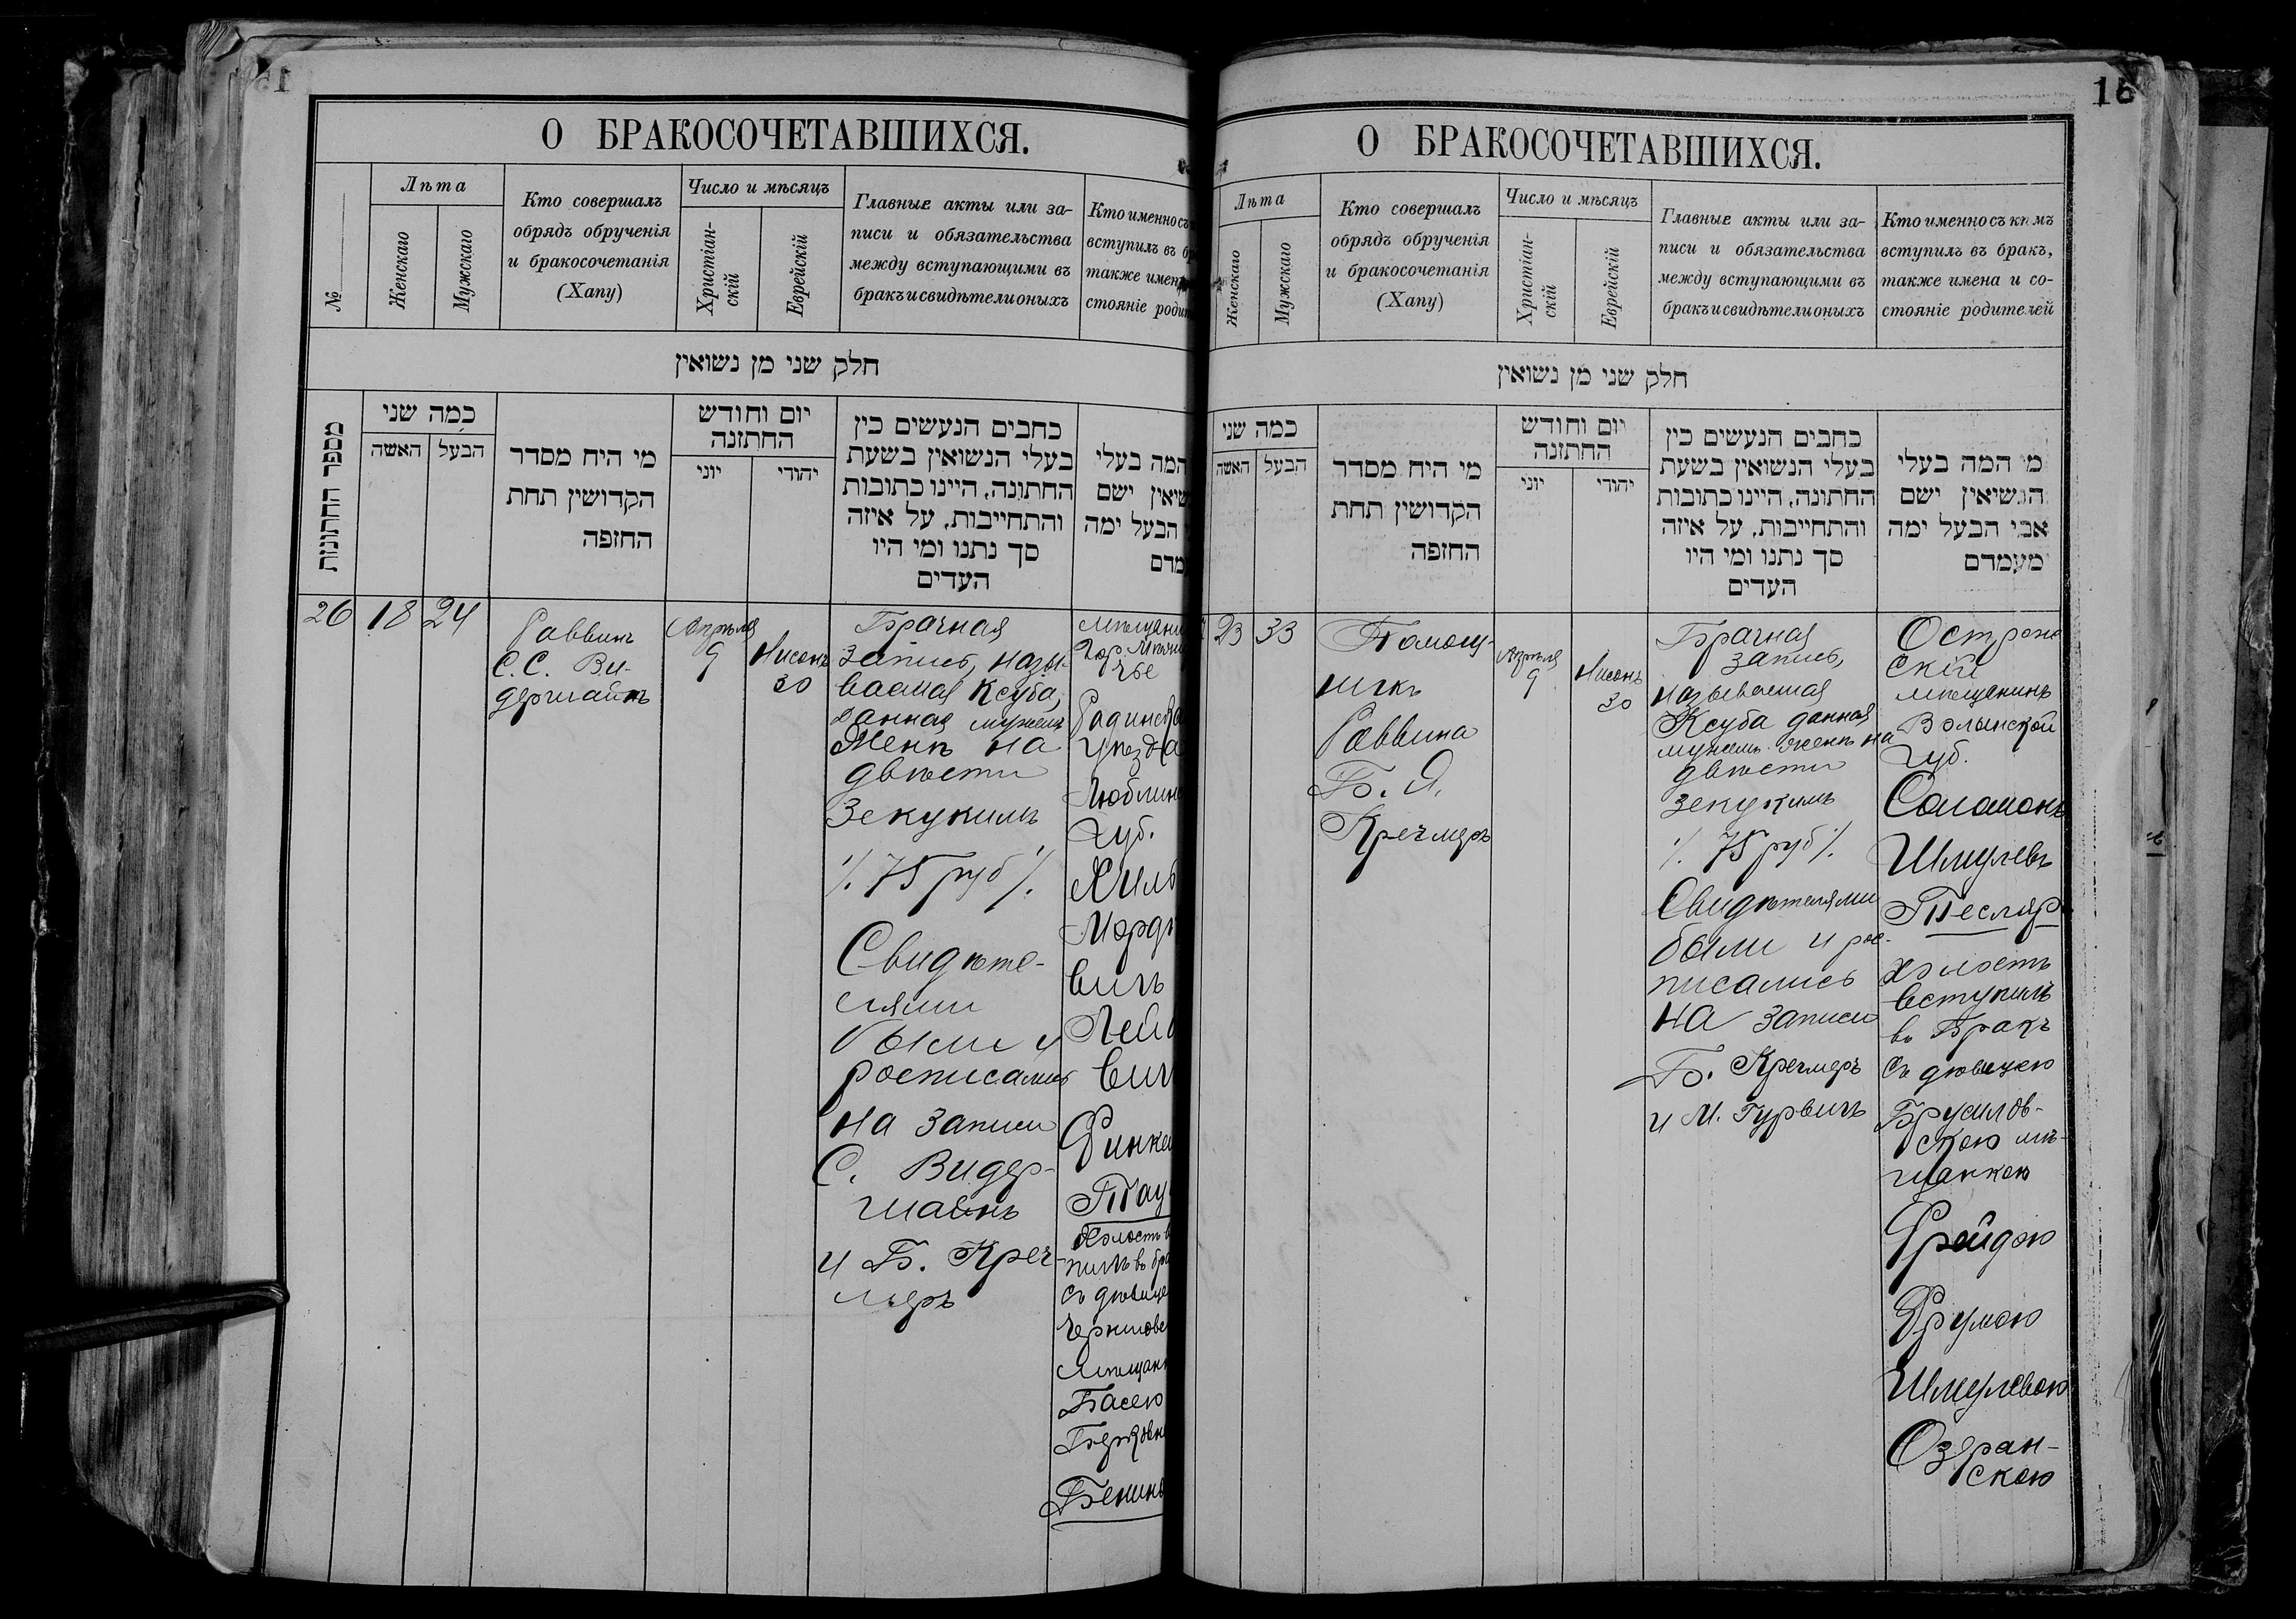 О БРАКОСОЧЕТАВШИХСЯ.
№
Лѣта
Женскаго
Мужскаго
Кто совершалъ
обрядъ обрученія
и бракосочетанія
(Хапу)
Число и мѣсяцъ
Христіан-
скій
Еврейскій
Главные акты или за-
писи и обязательства
между вступающими въ
бракъ и свидѣтели оныхъ
Кто именно съ
вступилъ въ
также имен
стояніе роди
חלק שני מן נשואין
מספר החתונות
כמה שני
האשה
הבעל
מי היח מסדר
הקדושין תחת
החופה
יום וחודש
החתונה
יוני
יהודי
כתבים הנעשים כין
בעלי הנשואין בשעת
החתונה, היינו כתובות
והתחייבות, על איזה
סך נתנו ומי היו
העדים
המה בעלי
שיאין ישם
הבעל ימה
מדם
26
18
24
Раввинъ
С.С. Ви-
дершайнъ
Апрѣля
9
Нисонъ
30
Брачная
запись, назы-
ваемая Ксуба,
данная мужемъ
Женѣ на
двѣсти
Зекукимъ
./. 75 руб ./.
Свидѣте-
лями
были и
росписались
на записи
С. Видер-
шайнъ
и Б. Креч-
меръ
мѣщани
гор.
Уѣзда
Люблин
Губ.
Хиль
Морд
вичъ
Лей
вич
Финкел
Тау
Холостъ в
пилъ въ бра
съ дѣвице
мѣщанк
Басею
Берков
Бенин
16
О БРАКОСОЧЕТАВШИХСЯ.
Лѣта
Женскаго
Мужскаго
Кто совершалъ
обрядъ обрученія
и бракосочетанія
(Хапу)
Число и мѣсяцъ
Христіан-
скій
Еврейскій
Главные акты или за-
писи и обязательства
между вступающими въ
бракъ и свидѣтели оныхъ
Кто именно съ кѣмъ
вступилъ въ бракъ,
также имена и со-
стояніе родителей
חלק שני מן נשואין
כמה שני
האשה
הבעל
מי היח מסדר
הקדושין תחת
החופה
יום וחודש
החתונה
יוני
יהודי
כתבים הנעשים כין
בעלי הנשואין בשעת
החתונה, היינו כתובות
והתחייבות, על איזה
סך נתנו ומי היו
העדים
מי המה בעלי
הנשיאין ישם
אבי הבעל ימה
מעמדם
23
33
Помощ-
никъ
Раввина
Б. Я.
Кречмеръ
Апрѣля
9
Нисонъ
30
Брачная
запись,
называемая
Ксуба данная
мужемъ женѣ на
двѣсти
зекукимъ
./. 75 руб ./.
Свидѣтелями
были и рос-
писались
на записи
Б. Кречмеръ
и М. Гурвичъ
Острож
скій
мѣщанинъ
Волынской
Губ.
Соломонъ
Шмулевъ
Тесляр
холостъ
вступилъ
въ Бракъ
съ дѣвицею
Брусилов-
скою мѣ-
щанкою
Фрейдою
Фрумою
Шмулевою
Озеран-
скою